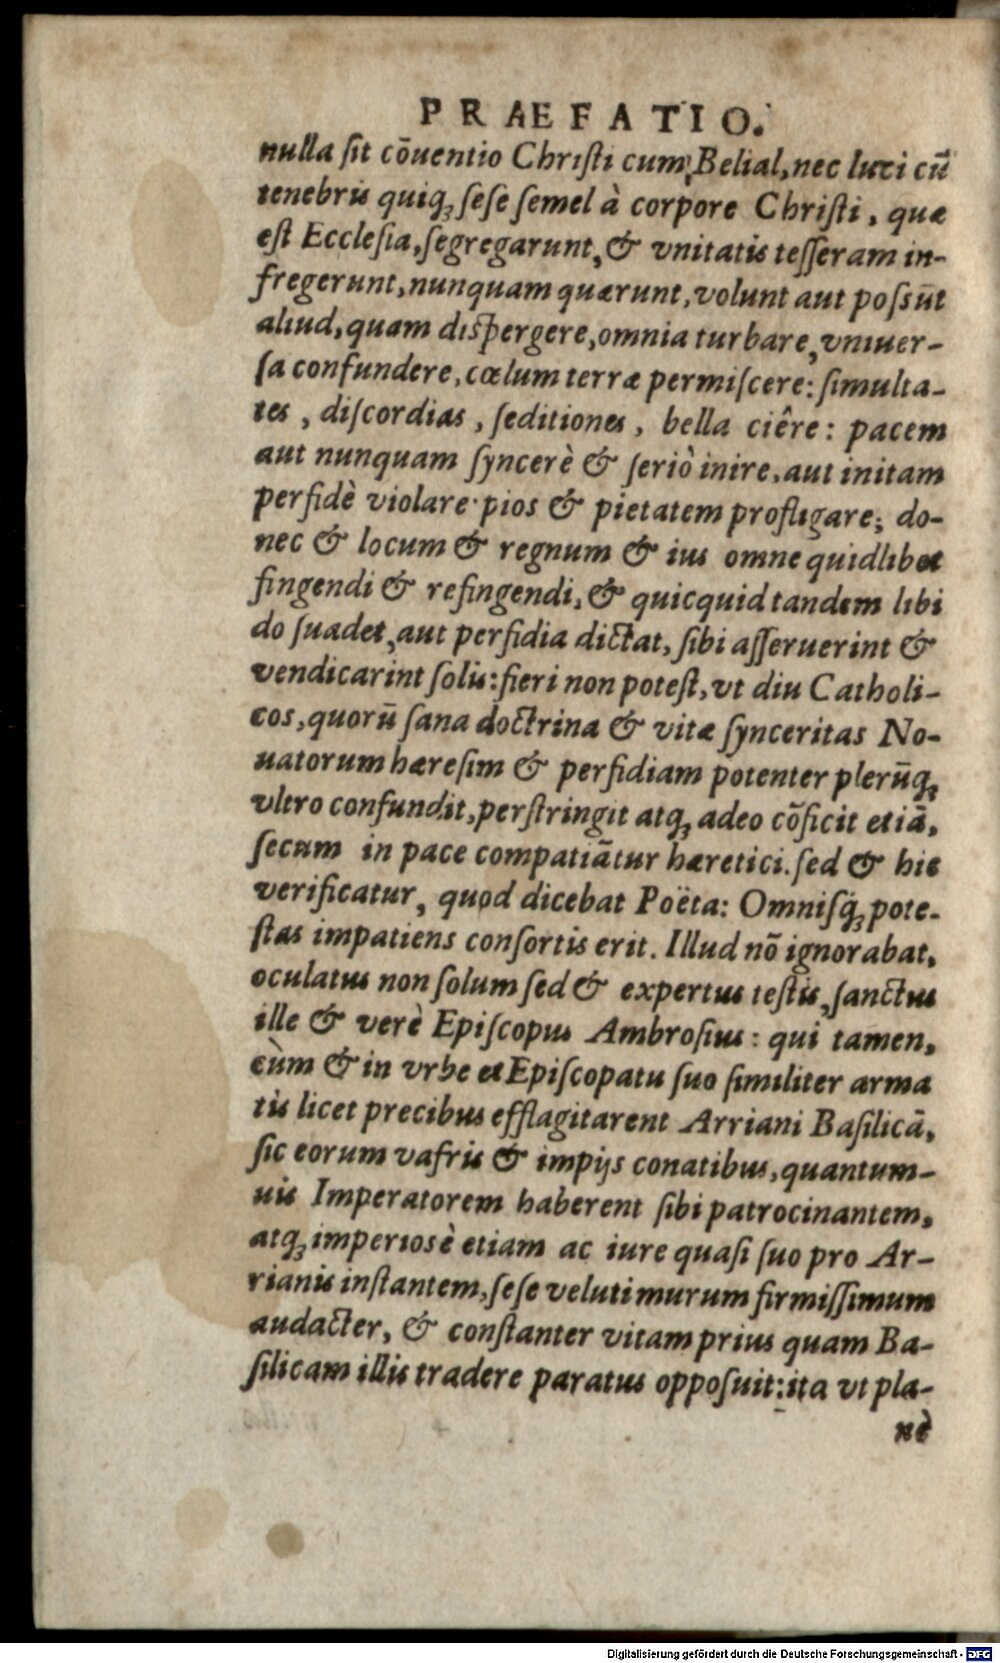 PRAEFATIO.
nulla ſit cōuentio Chriſti cum Belial, nec luci cū
tenebris quiq; ſeſe ſemel à corpore Chriſti, quæ
eſt Eccleſia, ſegregarunt, & vnitatis teſſeram in-
fregerunt, nunquam quærunt, volunt aut poſsūt
aliud, quam diſpergere, omnia turbare, vniuer-
ſa confundere, cœlum terræ permiſcere: ſimulta-
tes, diſcordias, ſeditiones, bella ciêre: pacem
aut nunquam ſyncerè & ſeriò inire, aut initam
perfidè violare· pios & pietatem profligare; do-
nec & locum & regnum & ius omne quidlibet
fingendi & refingendi, & quicquid tandem libi
do ſuadet, aut perfidia dictat, ſibi aſſeruerint &
vendicarint ſolis: fieri non poteſt, vt diu Catholi-
cos, quorū ſana doctrina & vitæ ſynceritas No-
uatorum hæreſim & perfidiam potenter plerūq;
vltro confundit, perſtringit atq; adeo cōficit etiā,
ſecum in pace compatiātur hæretici. ſed & hic
verificatur, quod dicebat Poëta: Omniſq́; pote-
ſtas impatiens conſortis erit. Illud nō ignorabat,
oculatus non ſolum ſed & expertus teſtis, ſanctus
ille & verè Epiſcopus Ambroſius: qui tamen,
cùm & in vrbe et Epiſcopatu ſuo ſimiliter arma
tis licet precibus efflagitarent Arriani Baſilicā,
ſic eorum vafris & impijs conatibus, quantum-
uis Imperatorem haberent ſibi patrocinantem,
atq; imperiosè etiam ac iure quaſi ſuo pro Ar-
rianis inſtantem, ſeſe veluti murum firmiſſimum
audacter, & conſtanter vitam prius quam Ba-
ſilicam illis tradere paratus oppoſuit: ita vt pla-
nè
Digitalisierung gefördert durch die Deutsche Forschungsgemeinschaft - DFG